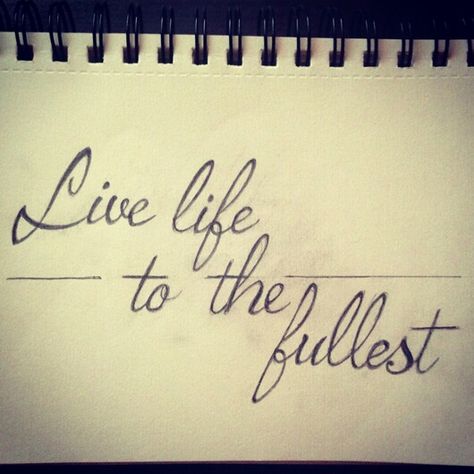 Live life
to the
fullest